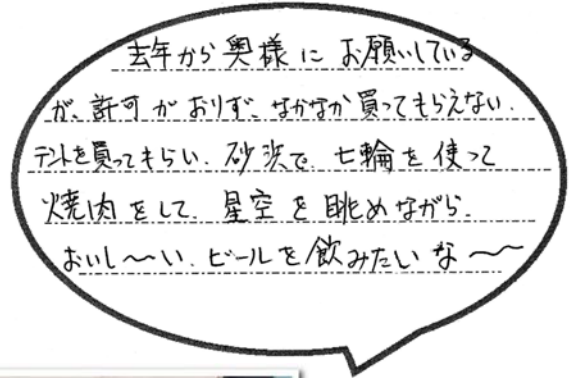 去年から奥様にお願いしている
が、許可がおりず、なかなか買ってもらえない.
テントを買ってもらい、砂浜で、七輪を使って
焼肉をして、星空を眺めながら、
おいし〜い、ビールを飲みたいな〜〜